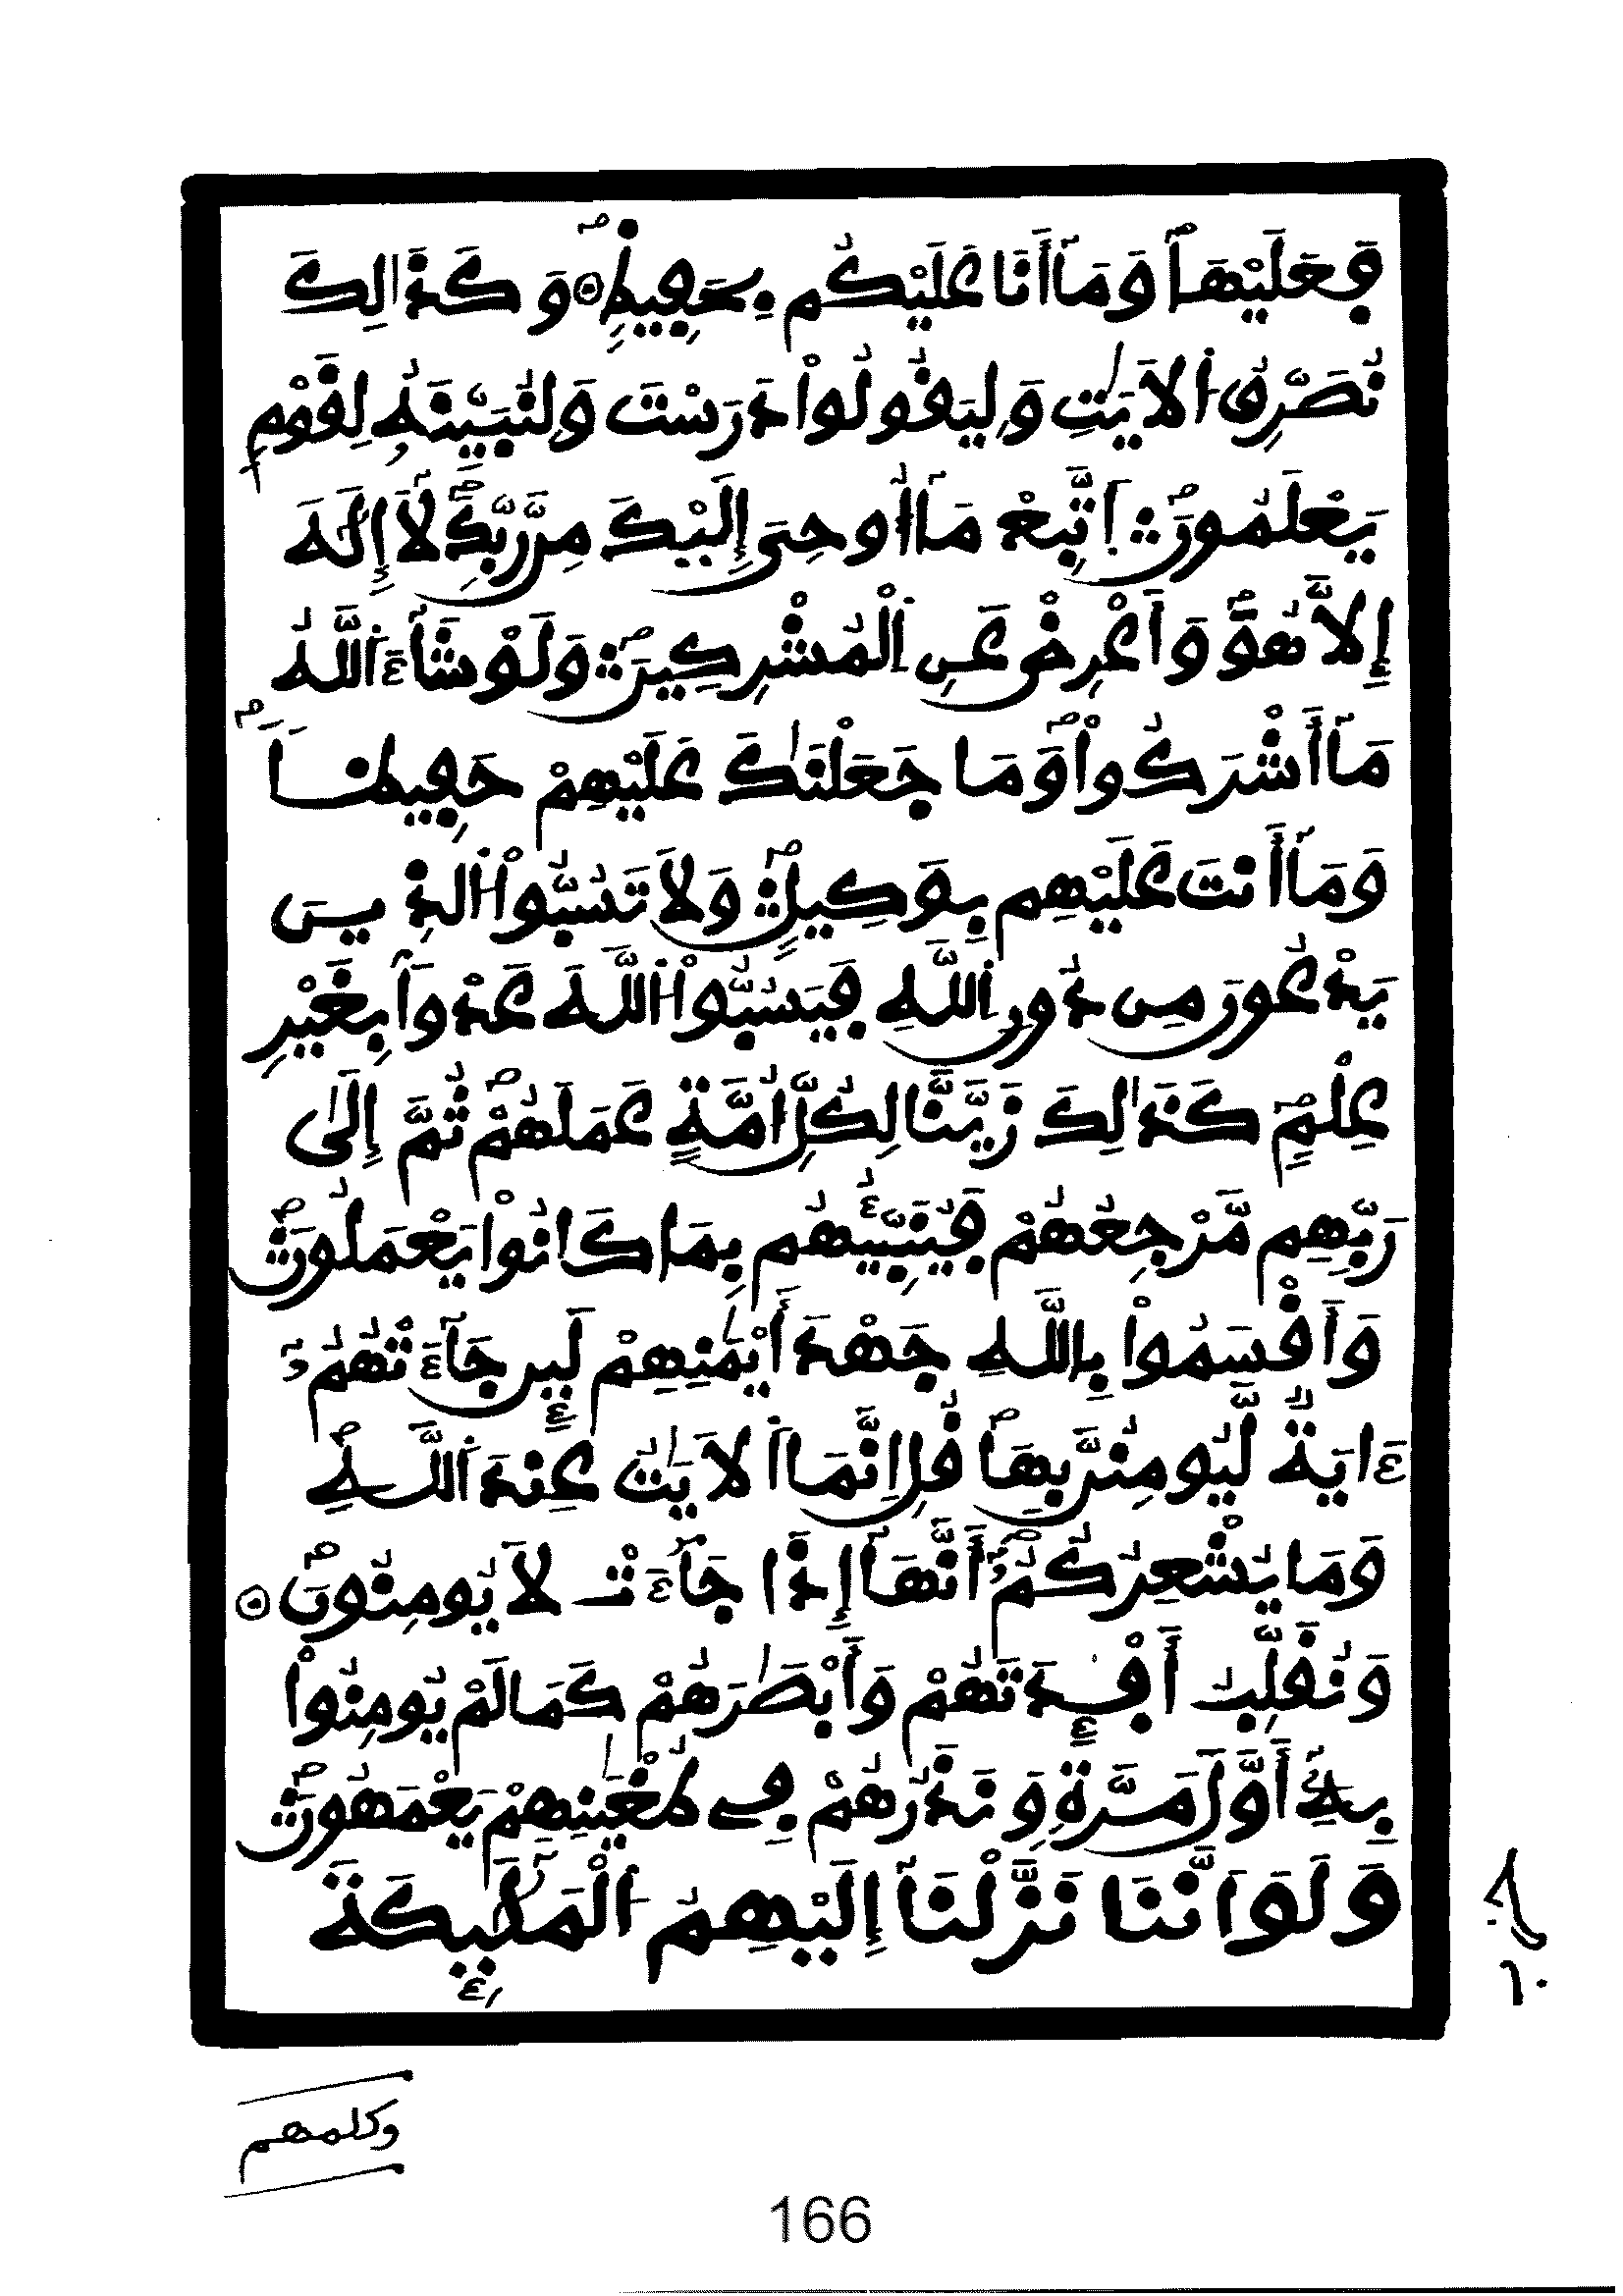 فَعَلَيْهَا وَمَآ أَنَا عَلَيْكُم بِحَفِيظٍ وَكَذَٰلِكَ
نُصَرِّفُ اٰ۬لَايَٰتِ وَلِيَقُولُواْ دَرَسْتَ وَلِنُبَيِّنَهُۥ لِقَوْمٍ
يَعْلَمُونَ اَ۪تَّبِعْ مَآ أُوحِيَ إِلَيْكَ مِن رَّبِّكَ لَآ إِلَٰهَ
إِلَّا هُوَ وَأَعْرِضْ عَنِ اِ۬لْمُشْرِكِينَ وَلَوْ شَآءَ اَ۬للَّهُ
مَآ أَشْرَكُواْ وَمَا جَعَلْنَٰكَ عَلَيْهِمْ حَفِيظاً
وَمَآ أَنتَ عَلَيْهِم بِوَكِيلٍ وَلَا تَسُبُّواْ اُ۬لذِينَ
يَدْعُونَ مِن دُونِ اِ۬للَّهِ فَيَسُبُّواْ اُ۬للَّهَ عَدْواَۢ بِغَيْرِ
عِلْمٍ كَذَٰلِكَ زَيَّنَّا لِكُلِّ أُمَّةٍ عَمَلَهُمْ ثُمَّ إِلَىٰ
رَبِّهِم مَّرْجِعُهُمْ فَيُنَبِّئُهُم بِمَا كَانُواْ يَعْمَلُونَ
وَأَقْسَمُواْ بِاللَّهِ جَهْدَ أَيْمَٰنِهِمْ لَئِن جَآءَتْهُمُۥٓ
ءَايَةٌ لَّيُومِنُنَّ بِهَا قُلِ اِنَّمَا اَ۬لَايَٰتُ عِندَ اَ۬للَّهِ
وَمَا يُشْعِرُكُمُۥٓ أَنَّهَآ إِذَا جَآءَتْ لَا يُومِنُونَ
وَنُقَلِّبُ أَفْـِٕدَتَهُمْ وَأَبْصَٰرَهُمْ كَمَا لَمْ يُومِنُواْ
بِهِۦٓ أَوَّلَ مَرَّةٍ وَنَذَرُهُمْ فِي طُغْيَٰنِهِمْ يَعْمَهُونَ
وَلَوَ اَنَّنَا نَزَّلْنَآ إِلَيْهِمُ اُ۬لْمَلَٰٓئِكَةَ
وكلمهم
166